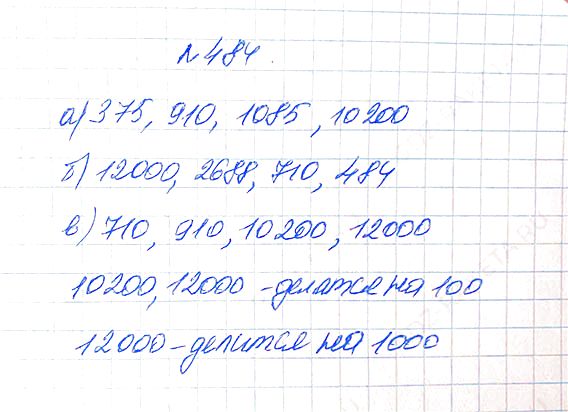 №484.
а) 375, 910, 1085, 10200
б) 12000, 2688, 710, 484
в) 710, 910, 10200, 12000
10200, 12000 - делятся на 100
12000 - делится на 1000